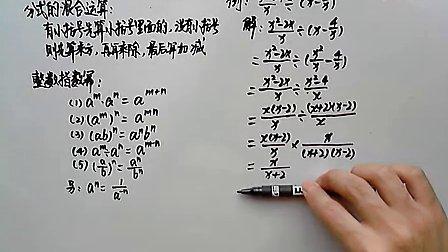 分式的混合运算:
有小括号先算小括号里面的,没有小括号
则先算乘方,再算乘除,最后算加减
整数指数幂:
(1) aᵐ·aⁿ = aᵐ⁺ⁿ
(2) (aᵐ)ⁿ = aᵐⁿ
(3) (ab)ⁿ = aⁿbⁿ
(4) aᵐ÷aⁿ = aᵐ⁻ⁿ
(5) (a/b)ⁿ = aⁿ/bⁿ
另: aⁿ = 1/a⁻ⁿ
例: (x²-2x)/x ÷ (x-4/x)
解: (x²-2x)/x ÷ (x-4/x)
= (x²-2x)/x ÷ (x²/x-4/x)
= (x²-2x)/x ÷ (x²-4)/x
= x(x-2)/x ÷ (x+2)(x-2)/x
= x(x-2)/x × x/(x+2)(x-2)
= x/(x+2)